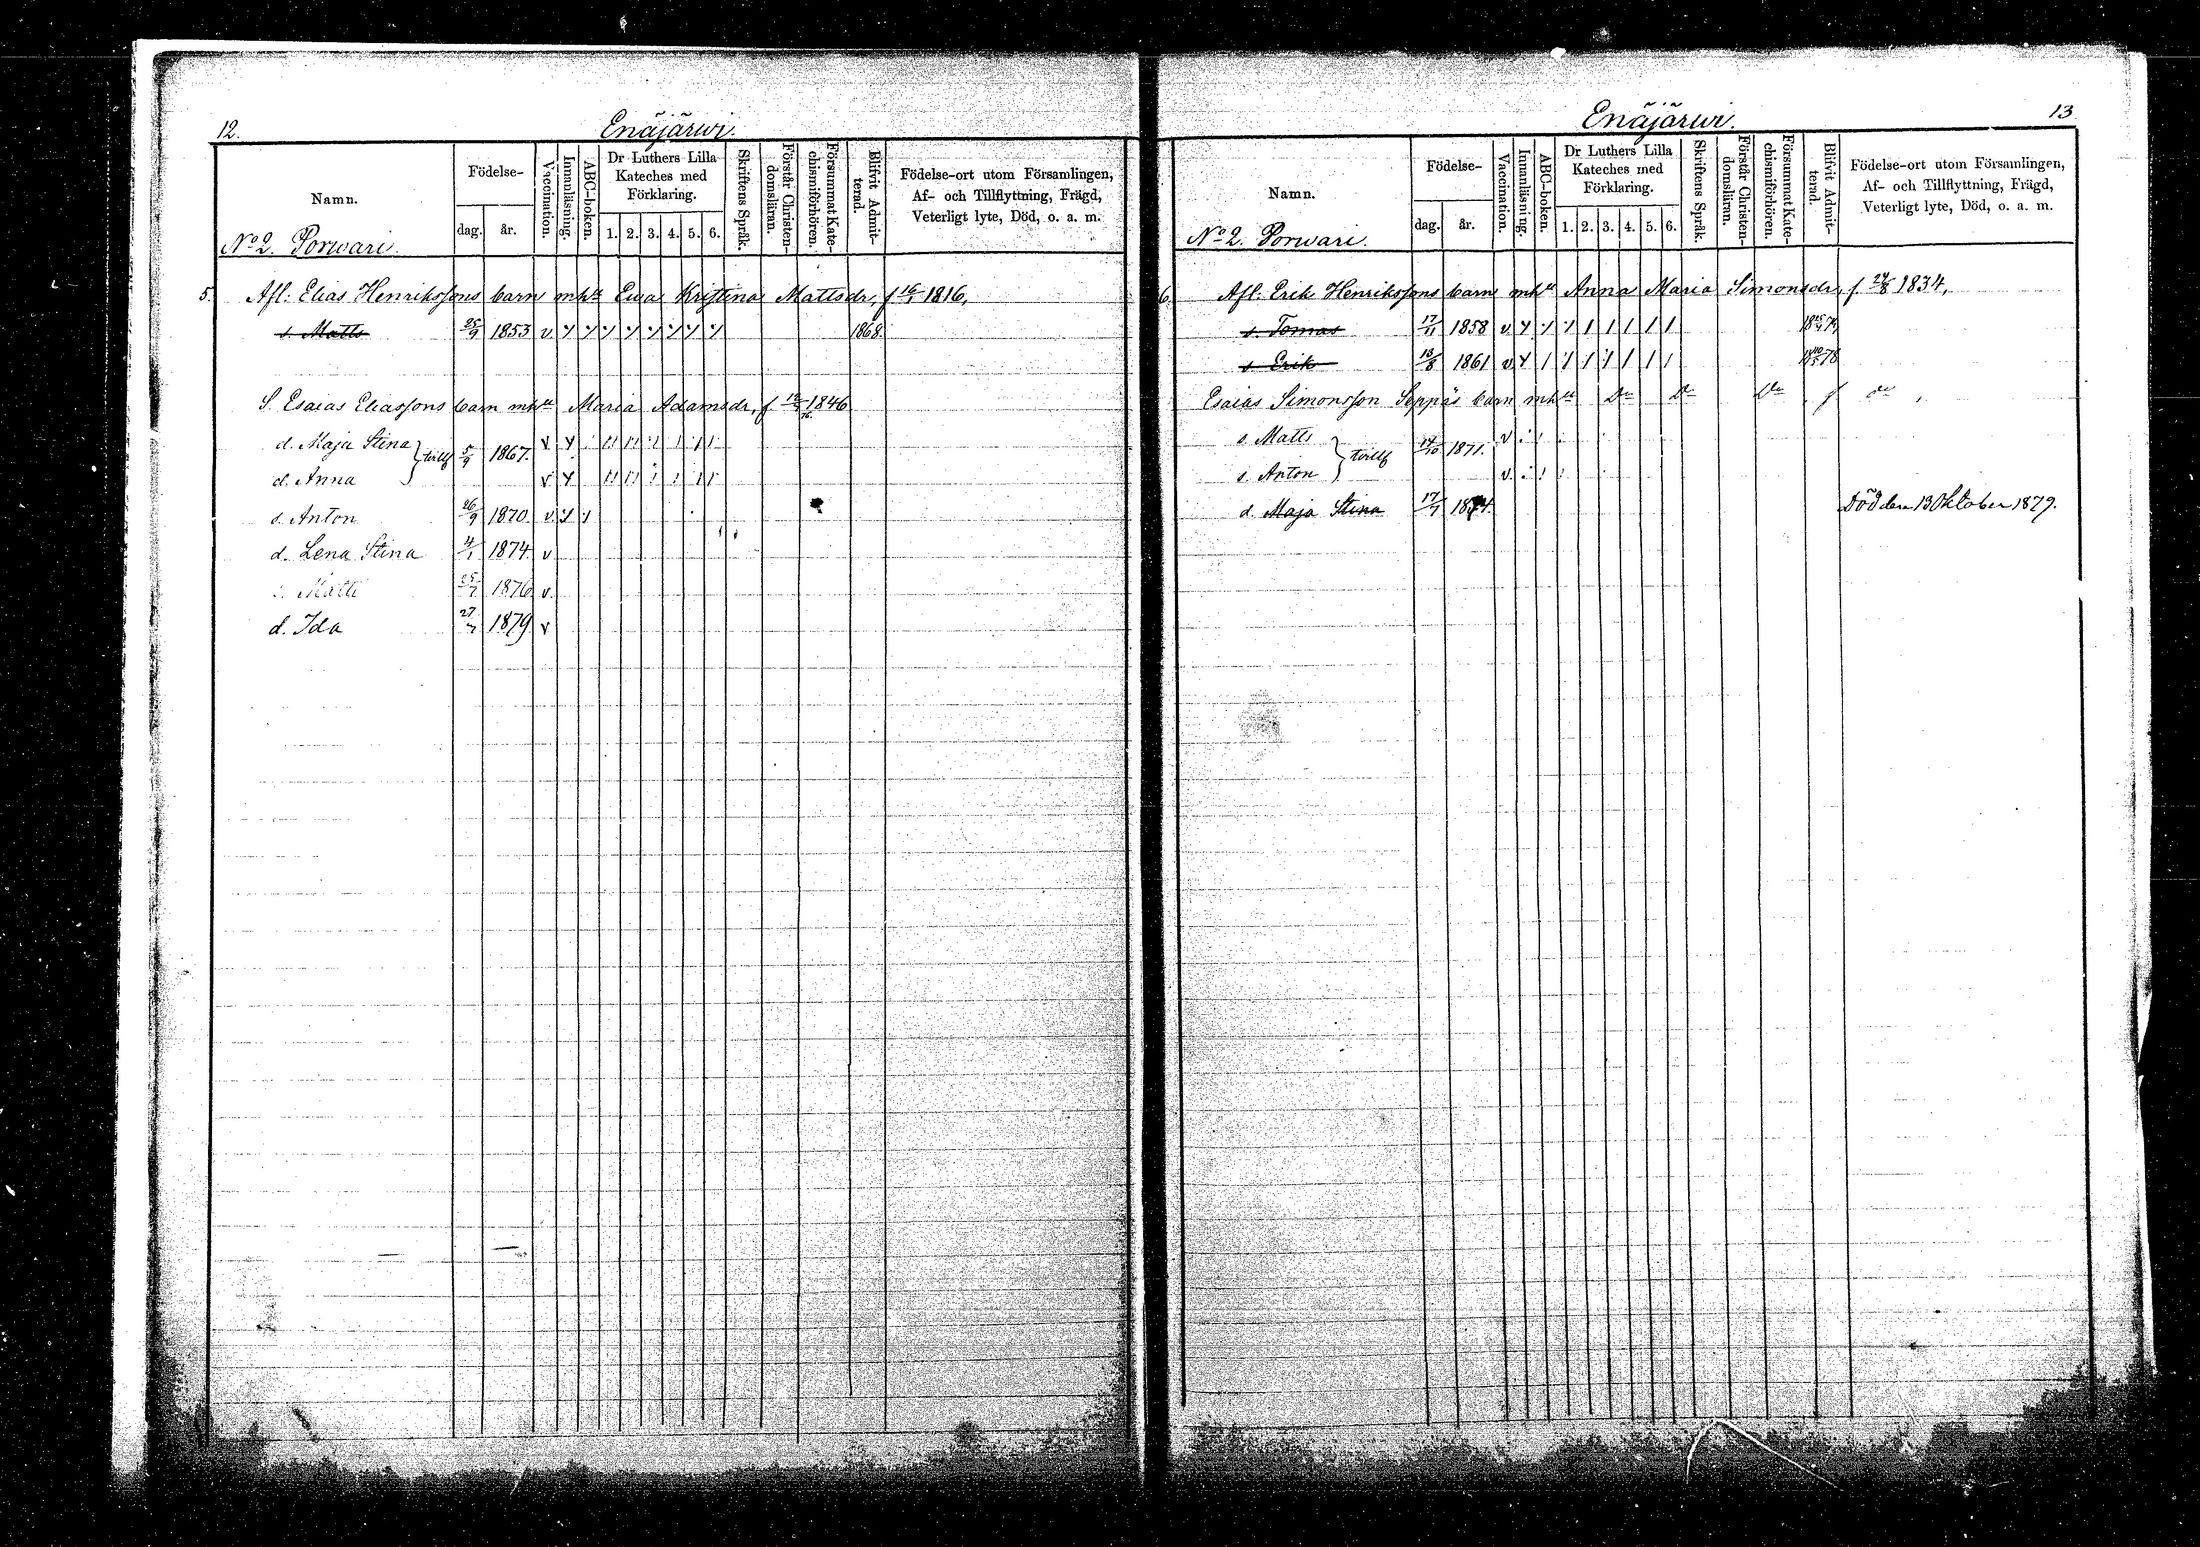 12.
Enäjärwi.
Namn.
Födelse-
dag.
år.
Vaccination.
Innanläsning.
ABC-boken.
Dr Luthers Lilla
Kateches med
Förklaring.
1. 2. 3. 4. 5. 6.
Skriftens Språk.
Förstår Christen-
domsläran.
Försummat Kate-
chismiförhören.
Blifvit Admit-
terad.
Födelse-ort utom Församlingen,
Af- och Tillflyttning, Frägd,
Veterligt lyte, Död, o. a. m.
No 2. Porwari.
5. Afl: Elias Henrikssons barn mh Ewa Kristina Mattsdr, f. 1816,
s. Matts 25/9 1853 v. 1868.
S. Esaias Eliassons barn mh Maria Adamsdr, f. 1846
d. Maja Stina } tvill 5/9 1867. v
d. Anna v
s. Anton 26/9 1870 v
d. Lena Stina 4/1 1874. v
s. Matti 25/7 1876 v.
d. Ida 27/7 1879 v
13
Enäjärwi.
Namn.
Födelse-
dag.
år.
Vaccination.
Innanläsning.
ABC-boken.
Dr Luthers Lilla
Kateches med
Förklaring.
1. 2. 3. 4. 5. 6.
Skriftens Språk.
Förstår Christen-
domsläran.
Försummat Kate-
chismiförhören.
Blifvit Admit-
terad.
Födelse-ort utom Församlingen,
Af- och Tillflyttning, Frägd,
Veterligt lyte, Död, o. a. m.
No 2. Porwari.
6. Afl. Erik Henrikssons barn mh Anna Maria Simonsdr, f. 24/8 1834,
s. Tomas 17/11 1858 v.
s. Erik 18/8 1861 v
Esaias Simonsson Seppäs barn mh Do Do Do f do,
s. Matts } tvill 14/10 1871. v
s. Anton v.
d. Maja Stina 17/7 1874. Död den 13 Oktober 1879.